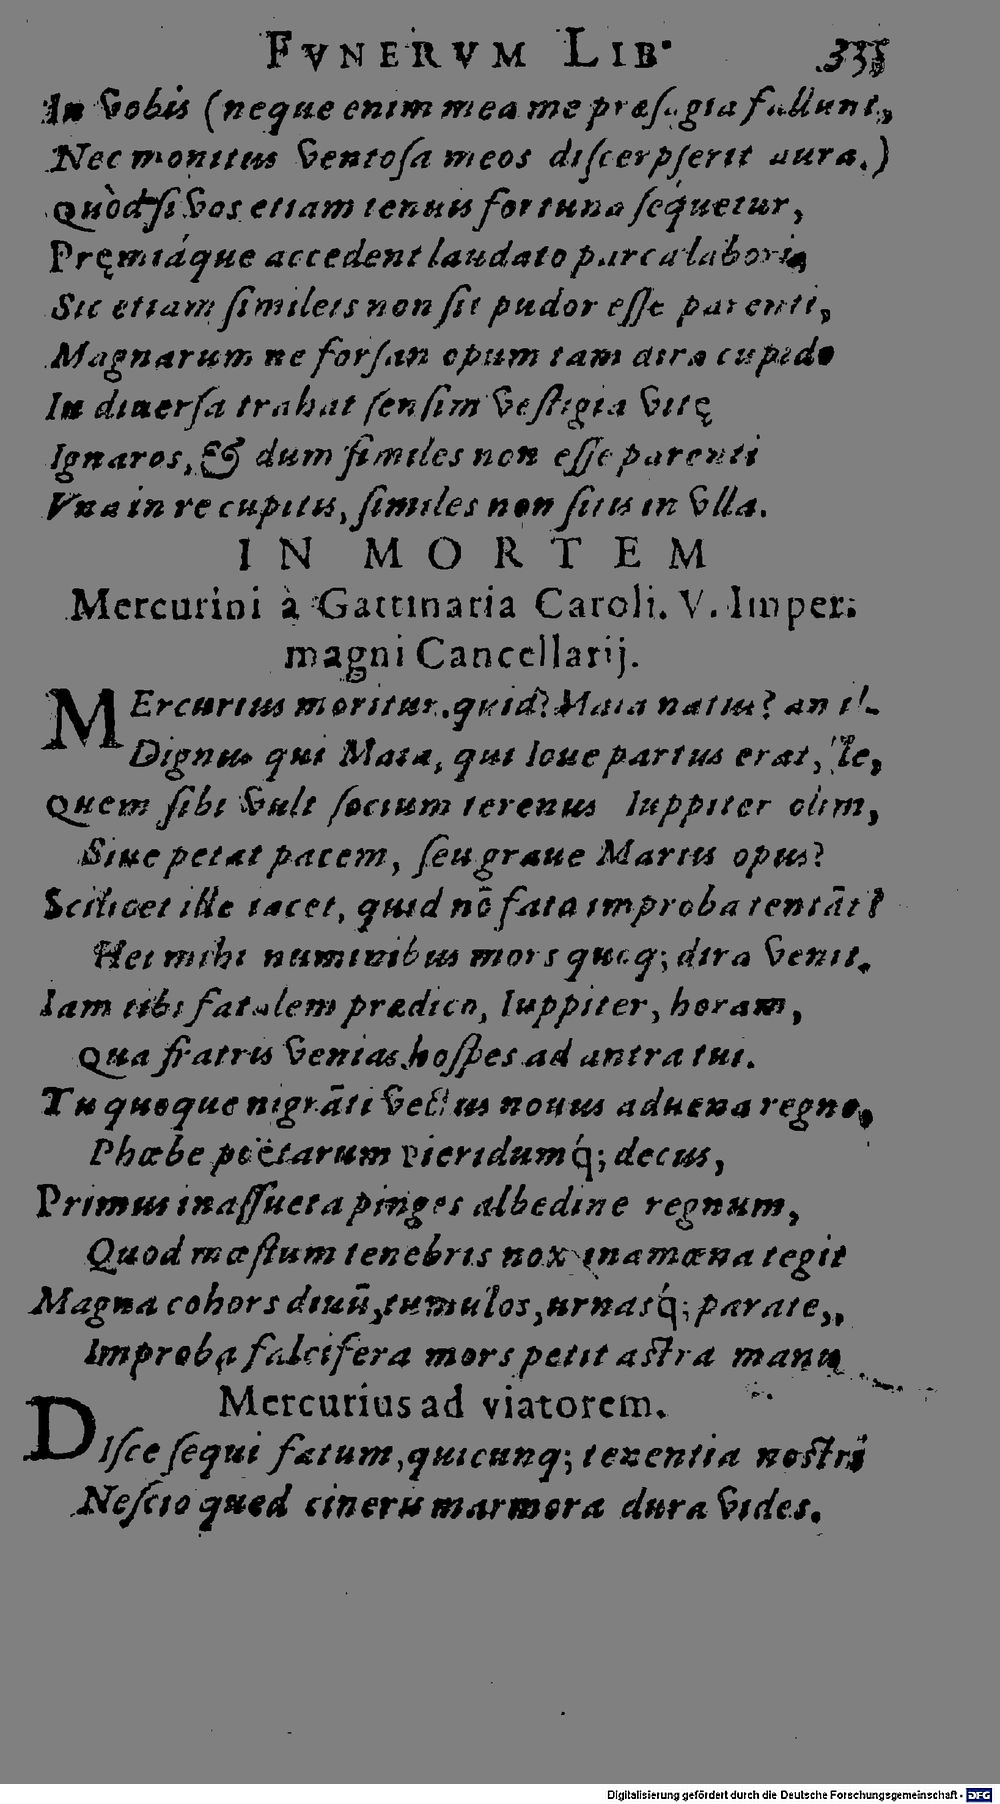 FVNERVM LIB. 335
In vobis (neque enim mea me præſagia fallunt,
Nec monitus ventoſa meos diſcerpſerit aura.)
Quòd ſi vos etiam tenuis fortuna ſequetur,
Pręmiáque accedent laudato parca labori,
Sic etiam ſimileis non ſit pudor eſſe parenti,
Magnarum ne forſan opum tam dira cupido
In diuerſa trahat ſenſim veſtigia vitę
Ignaros, & dum ſimiles non eſſe parenti
Vna in re cupitis, ſimiles non ſitis in vlla.
IN MORTEM
Mercurini à Gattinaria Caroli. V. Imper.
magni Cancellarij.
MErcurius moritur. quid? Maia natus? an il-
Dignus qui Maia, qui Ioue partus erat, le,
Quem ſibi vult ſocium terenus Iuppiter olim,
Siue petat pacem, ſeu graue Martis opus?
Scilicet ille iacet, quid nō fata improba tentāt?
Hei mihi numinibus mors quoq; dira venit.
Iam tibi fatalem prædico, Iuppiter, horam,
Qua fratris venias hoſpes ad antra tui.
Tu quoque nigrāti vectus nouus aduena regno,
Phœbe poëtarum Pieridumq́; decus,
Primus inaſſueta pinges albedine regnum,
Quod mœſtum tenebris nox inamœna tegit
Magna cohors diuū, tumulos, urnasq́; parate,
Improba falcifera mors petit aſtra manu
Mercurius ad viatorem.
DIſce ſequi fatum, quicunq; tenentia noſtri
Neſcio quod cineris marmora dura vides.
Digitalisierung gefördert durch die Deutsche Forschungsgemeinschaft - DFG